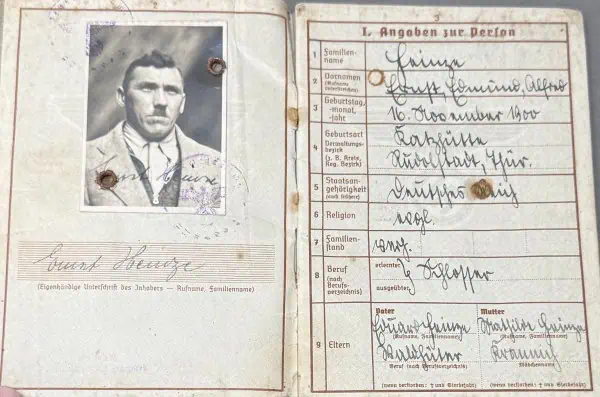 Ernst Heinze
Ernst Heinze
(Eigenhändige Unterschrift des Inhabers — Rufname, Familienname)
3
I. Angaben zur Person
1 Familien-
name
Heinze
2 Vornamen
(Rufname
unterstreichen)
Ernst, Edmund, Alfred
3 Geburtstag,
-monat,
-jahr
16. November 1900
4 Geburtsort
Verwaltungs-
bezirk
(z. B. Kreis,
Reg. Bezirk)
Katzhütte
Rudolstadt, Thür.
5 Staatsan-
gehörigkeit
(auch frühere)
Deutsches Reich
6 Religion
evgl.
7 Familien-
stand
verh.
8 Beruf
(nach
Berufs-
verzeichnis)
erlernter
ausgeübter
} Schlosser
9 Eltern
Vater
Mutter
Eduard Heinze
Mathilde Heinze
(Rufname, Familienname)
(Rufname, Familienname)
Waldhüter
Beruf (nach Berufsverzeichnis)
Mädchenname
(wenn verstorben: † und Sterbejahr)
(wenn verstorben: † und Sterbejahr)